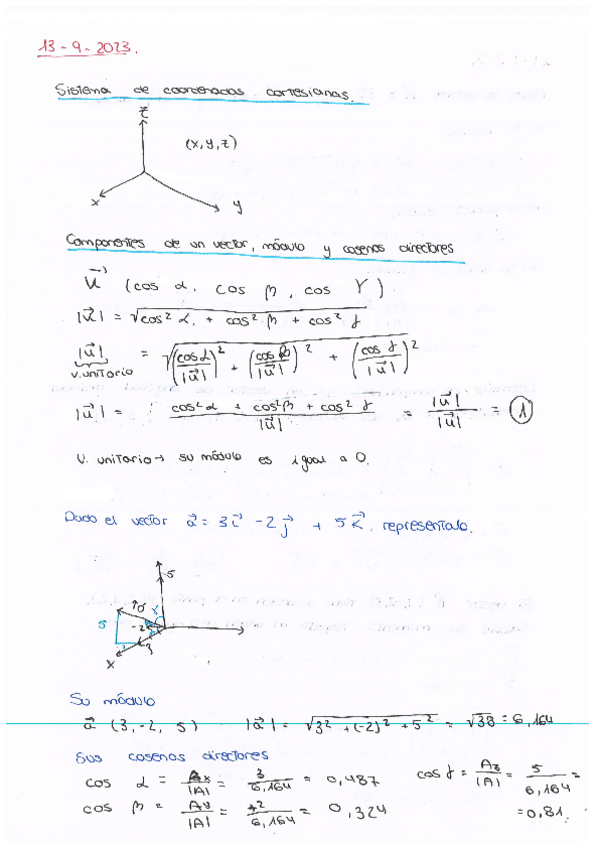 13-9-2023.
Sistema de coordenadas cartesianas.
z
(x, y, z)
x
y
Componentes de un vector, módulo y cosenos directores
u⃗ (cos α, cos β, cos γ)
|u⃗| = √cos² α, + cos² β + cos² γ
|u⃗| = √(cos α / |u⃗|)² + (cos β / |u⃗|)² + (cos γ / |u⃗|)²
v. unitario
|u⃗| = cos² α + cos² β + cos² γ / |u⃗| = |u⃗| / |u⃗| = 1
V. unitario → su módulo es igual a 0.
Dado el vector a⃗ = 3i⃗ - 2j⃗ + 5k⃗, represéntalo.
5
5
-2
3
x
Su módulo
a⃗ (3, -2, 5) |a⃗| = √3² + (-2)² + 5² = √38 = 6,164
Sus cosenos directores
cos α = Ax / |A| = 3 / 6,164 = 0,487 cos γ = Az / |A| = 5 / 6,164 =
cos β = Ay / |A| = 2 / 6,164 = 0,324 = 0,81.